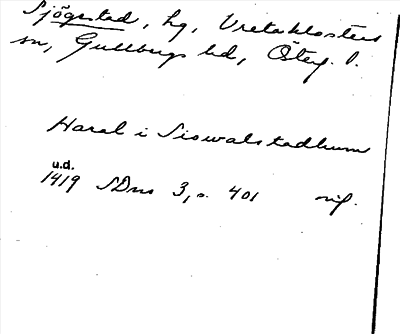 Sjögestad, hg, Vretaklosters
sn, Gullbergs hd, Österg. l.
Haral i Siswalstadhum
u.d.
1419 SDns 3, s. 401 nif.